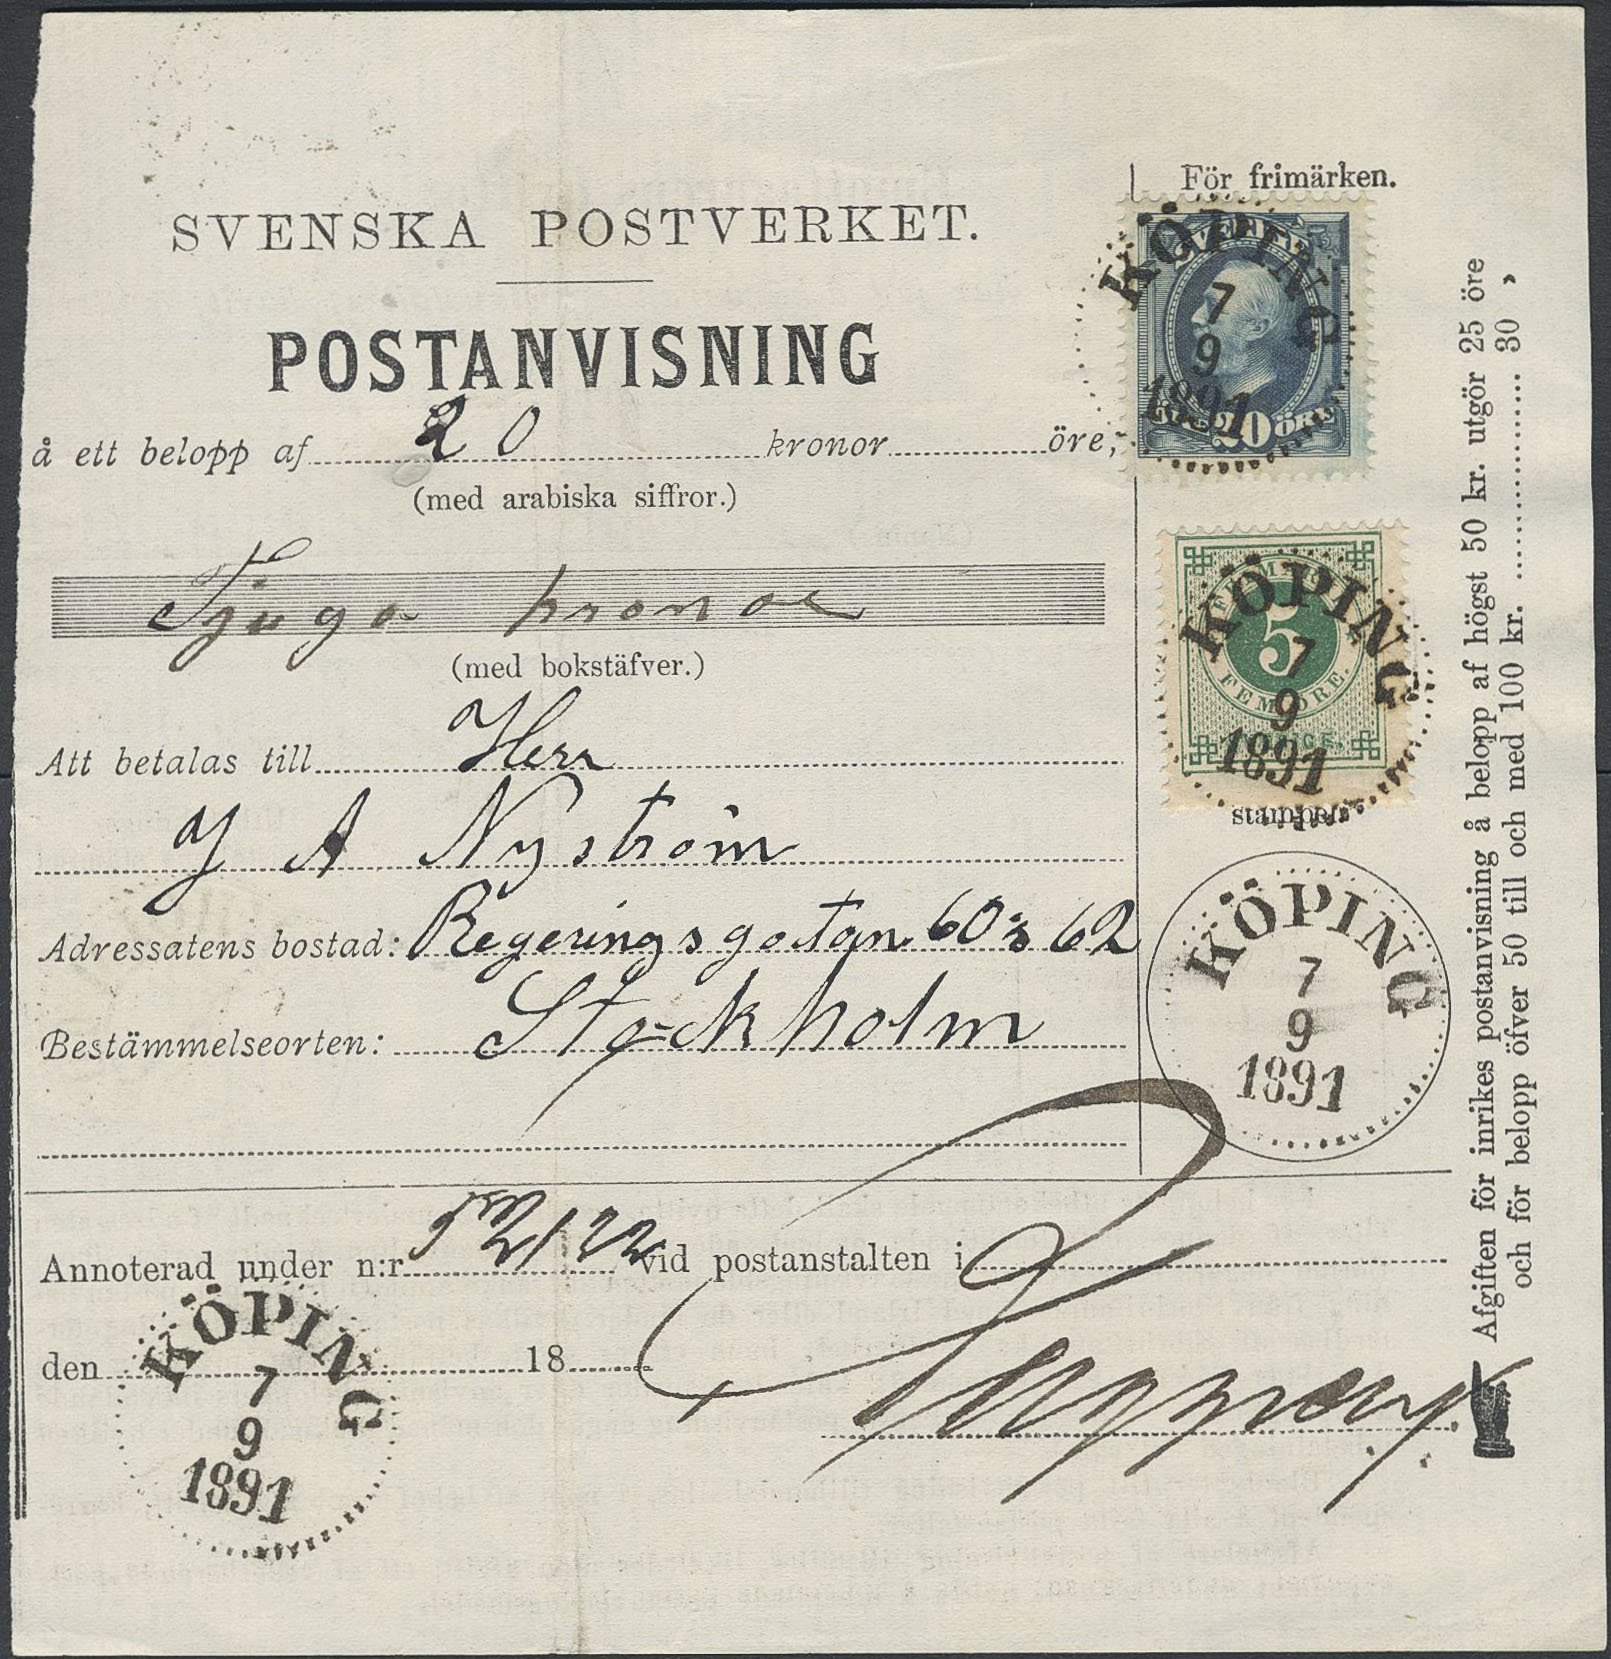 För frimärken.
SVENSKA POSTVERKET.
POSTANVISNING
å ett belopp af 20 kronor öre,
(med arabiska siffror.)
Tjugo kronor
(med bokstäfver.)
Att betalas till Herr
J A Nyström
Adressatens bostad: Regeringsgatan 60 & 62
Bestämmelseorten: Stockholm
KÖPING
7
9
1891
SVERIGE
20 ÖRE
KÖPING
7
9
1891
5
FEM ÖRE.
stämpel
KÖPING
7
9
1891
Annoterad under n:r vid postanstalten i
den 18
KÖPING
7
9
1891
Afgiften för inrikes postanvisning å belopp af högst 50 kr. utgör 25 öre
och för belopp öfver 50 till och med 100 kr. 30 »